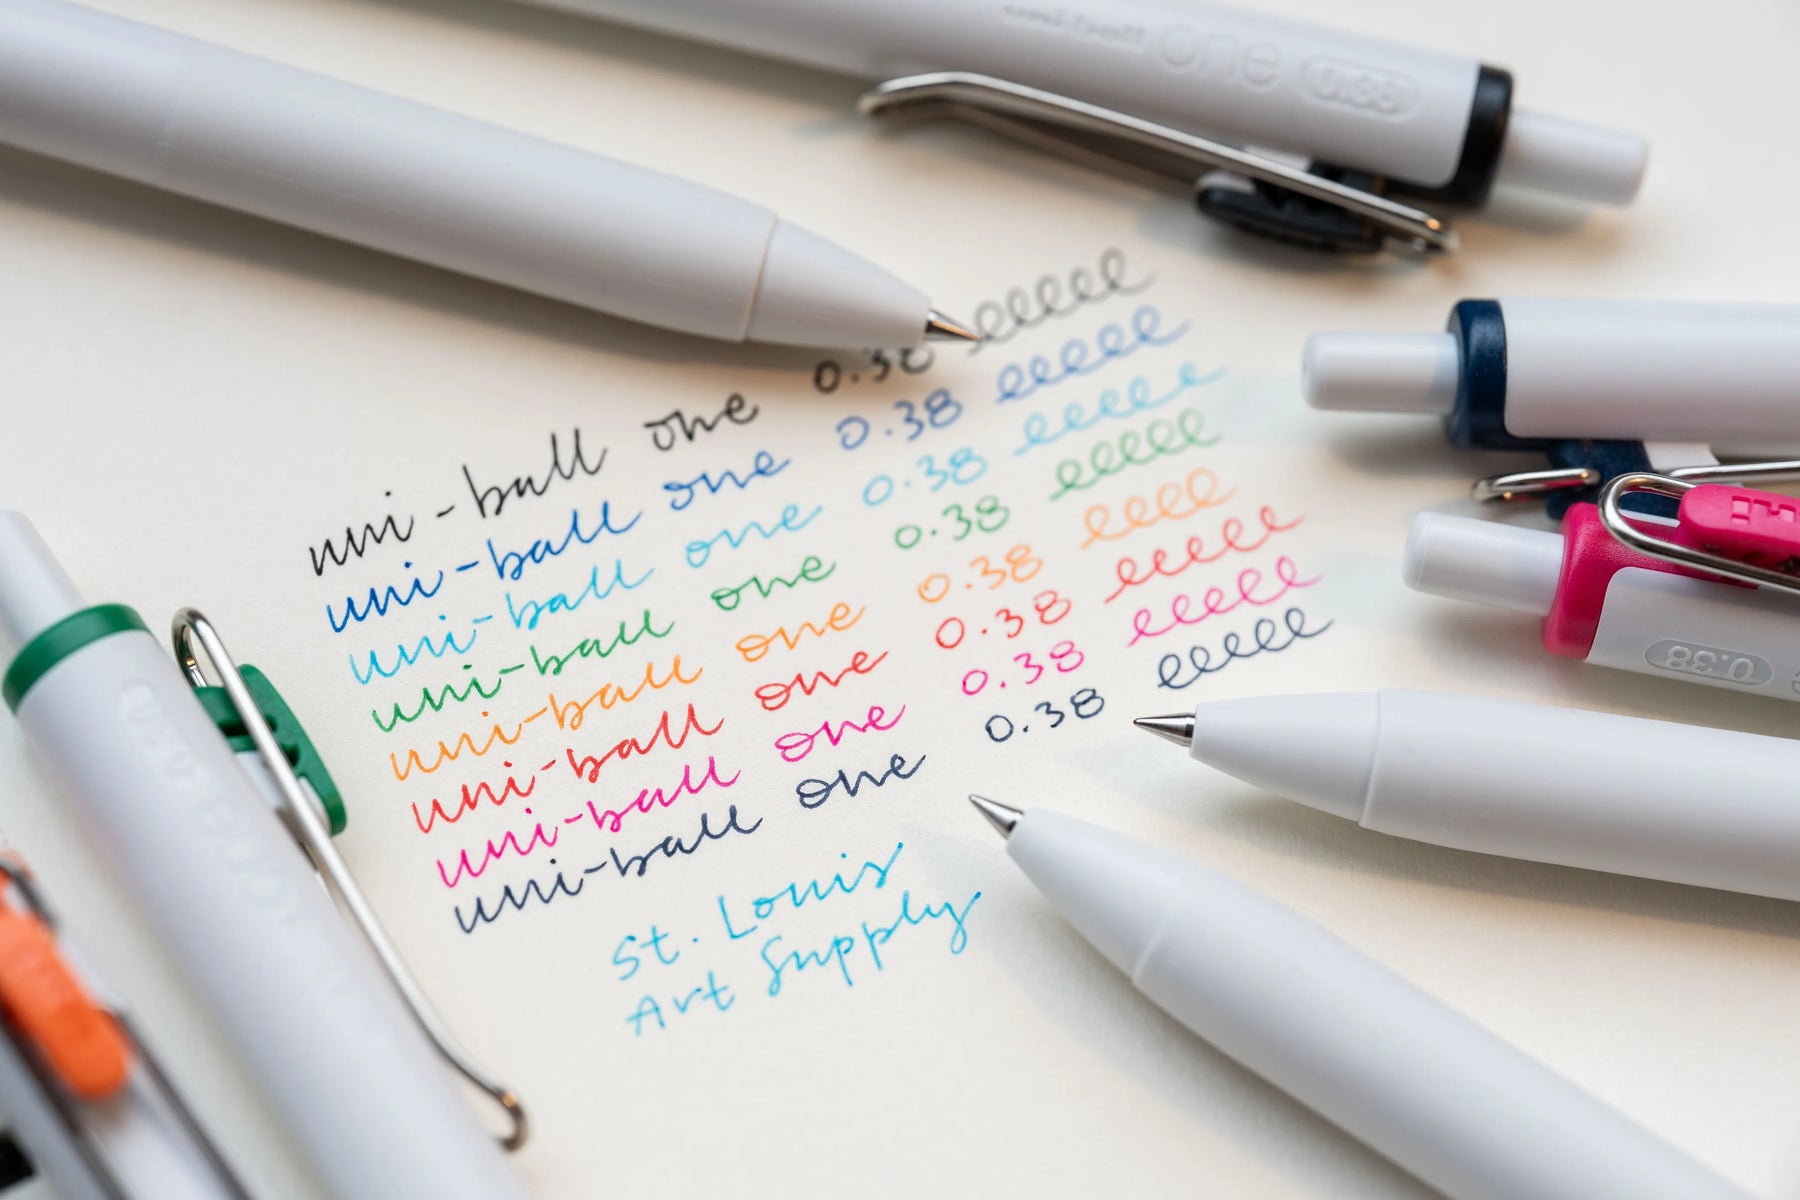 uni-ball one 0.38
uni-ball one 0.38
uni-ball one 0.38 eeeee
uni-ball one 0.38 eeeee
uni-ball one 0.38 eeeee
uni-ball one 0.38 eeee
uni-ball one 0.38 eeeee
uni-ball one 0.38 eeeee
uni-ball one 0.38 eeeee
St. Louis
Art Supply
0.38